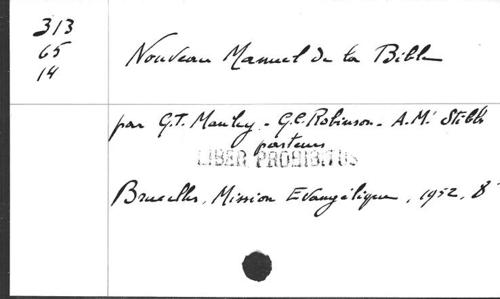 313
65
14
Nouveau Manuel de la Bible
par G.T. Manley - G.C. Robinson - A.M. Stibbs
pasteurs
LIBER PROHIBITUS
Bruxelles, Mission Evangélique, 1952, 8°